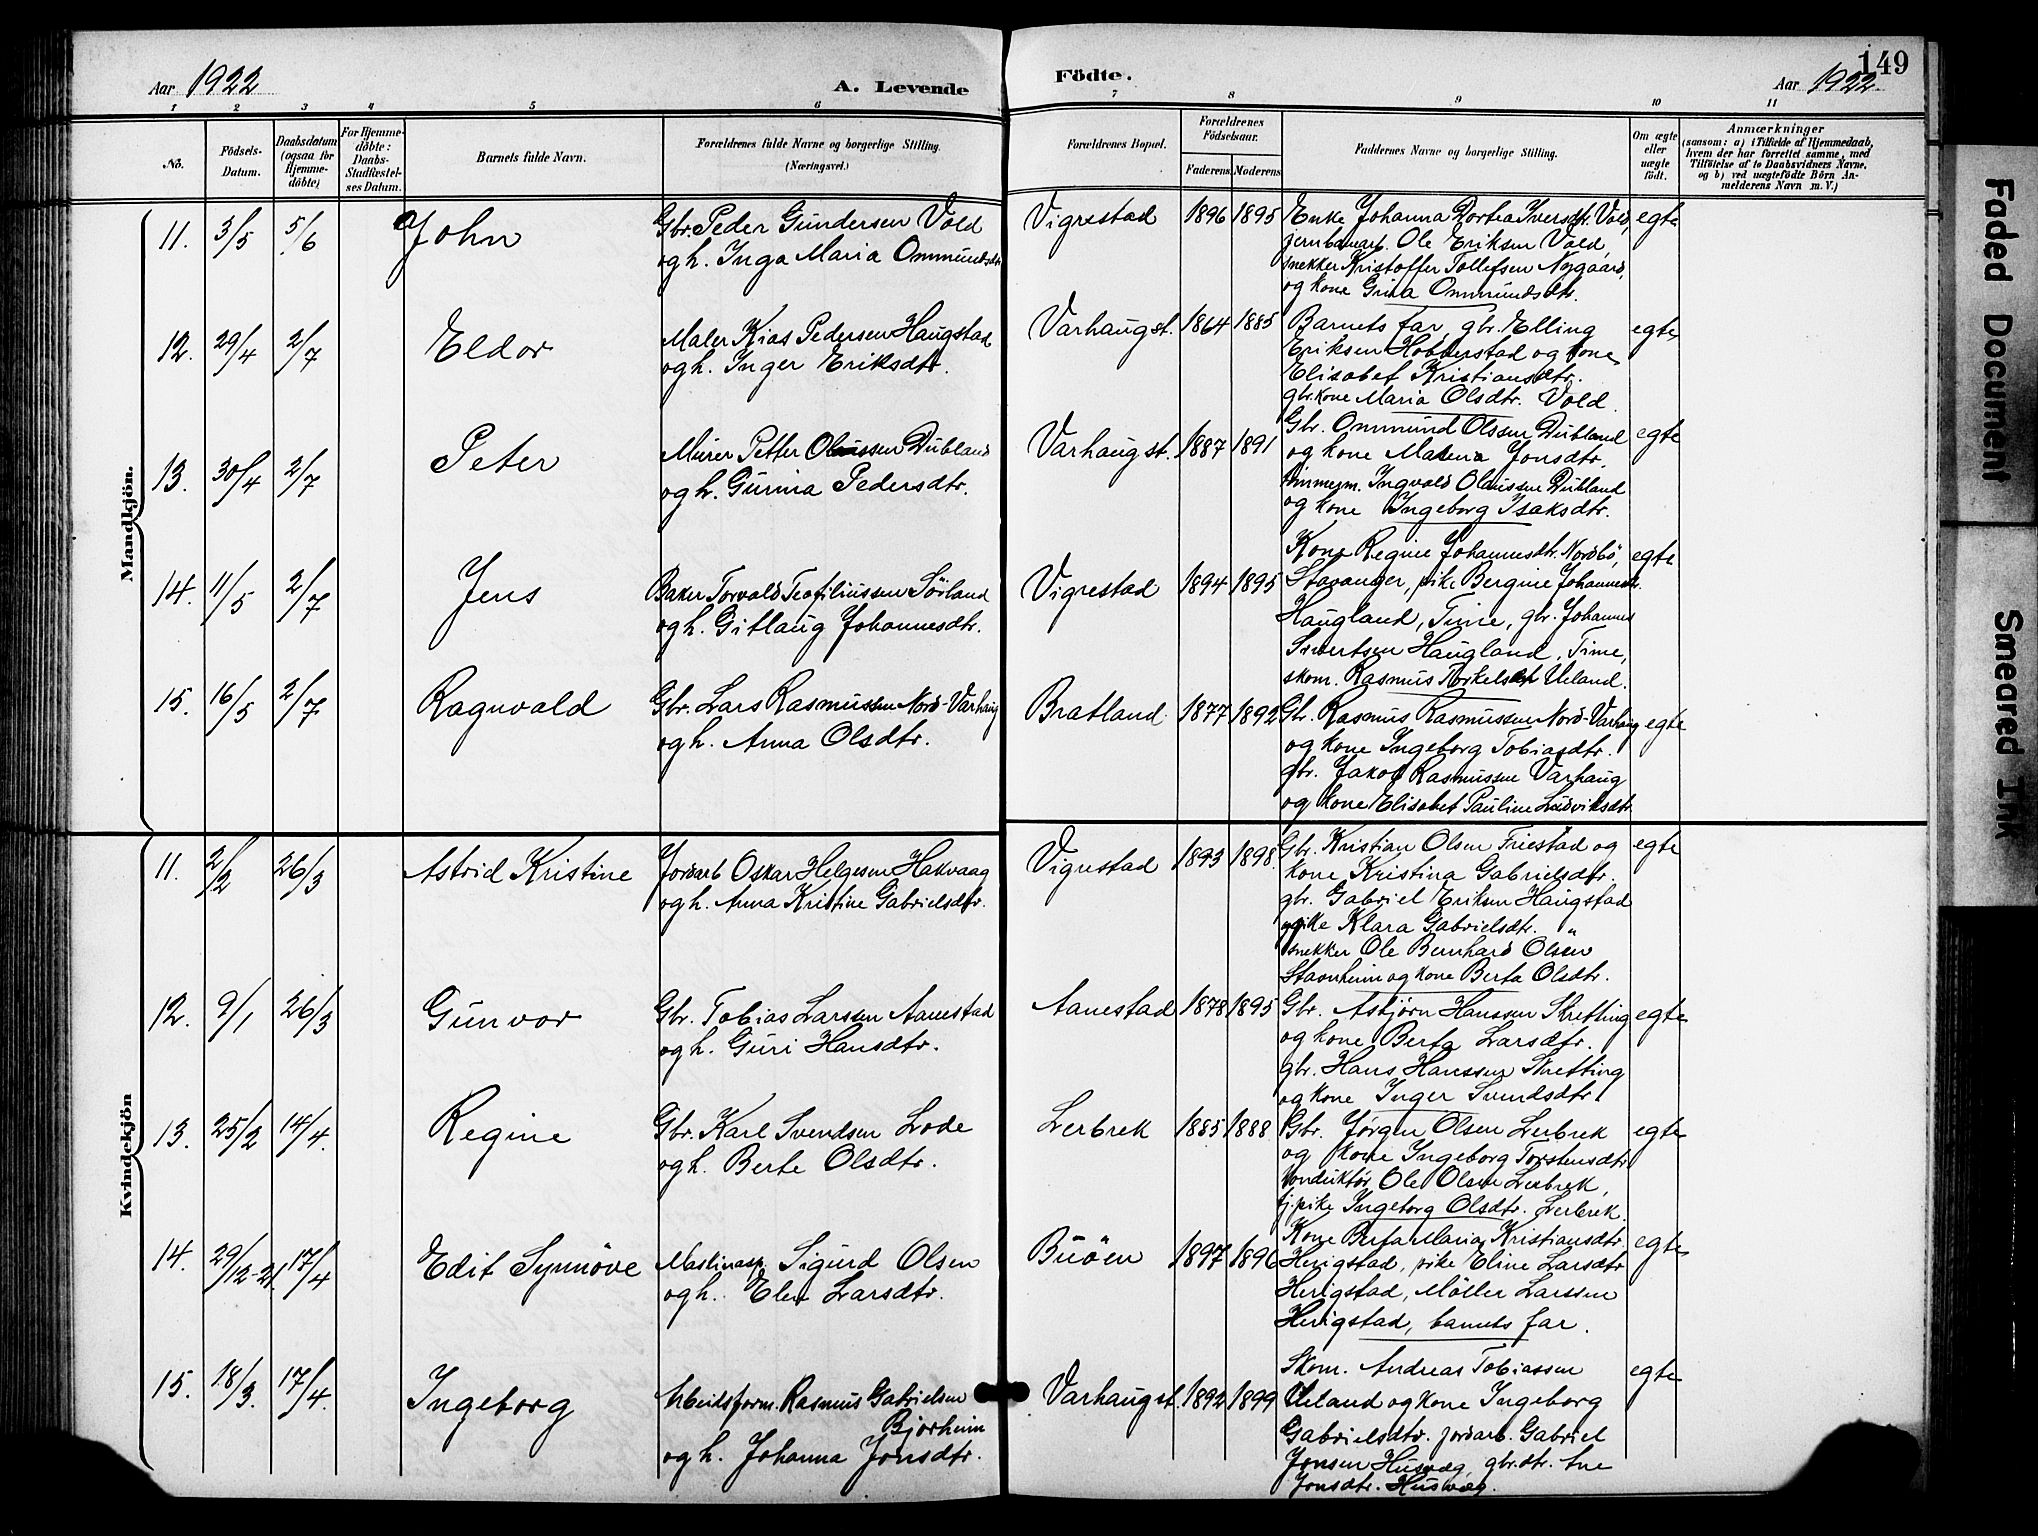 149
Aar 1922
A. Levende
Födte.
Aar 1922
1 2 3 4 5 6 7 8 9 10 11
No.
Födsels-Datum.
Daabsdatum (ogsaa for Hjemme-döbte)
For Hjemme-döbte: Daabs-Stadfæstel-ses Datum.
Barnets fulde Navn.
Forældrenes fulde Navne og borgerlige Stilling.
(Næringsvei.)
Forældrenes Bopæl.
Forældrenes Födselsaar.
Faderens Moderens
Faddernes Navne og borgerlige Stilling.
Om ægte eller uægte födt.
Anmærkninger
(saasom: a) i Tilfælde af Hjemmedaab, hvem der har forrettet samme, med Tilföielse af to Daabsvidners Navne, og b) ved uægtefödte Börn An-melderens Navn m. V.)
Mandkjön.
11. 3/5 5/6 John
Gbr. Peder Gundersen Vold
og h. Inga Maria Ommundsdtr
Vigrestad 1896 1895
Enke Johanna Dortea Iversdtr. Vold,
jernbanearb. Ole Eriksen Vold,
snekker Kristoffer Tollefsen Nygaard,
og kone Grita Ommundsdtr.
egte
12. 29/4 2/7 Eldor
Maler Kias Pedersen Haugstad
og h. Inger Eriksdtr.
Varhaugst. 1864 1885
Barnets far, gbr. Elling
Eriksen Hobberstad og kone
Elisabet Kristiansdtr.
gbr.kone Maria Olsdtr. Vold.
egte
13. 30/4 2/7 Peter
Murer Petter Olaussen Dubland
og h. Gurina Pedersdtr.
Varhaugst. 1887 1891
Gbr. Ommund Olssen Dubland
og kone Malena Jonsdtr.
tømmerm. Ingvald Olaussen Dubland
og kone Ingeborg Isaksdtr.
egte
14. 11/5 2/7 Jens
Baker Torvald Teofiliussen Sörland
og h. Gitlaug Johannesdtr.
Vigrestad 1894 1895
Kone Regine Johannesdtr. Nordbö,
Stavanger, pike Bergine Johannesdtr.
Haugland, Time, gbr. Johannes
Sivertsen Haugland, Time,
skom. Rasmus Torkelsen Ueland.
egte
15. 16/5 2/7 Ragnvald
Gbr. Lars Rasmussen Nord-Varhaug
og h. Anna Olsdtr.
Bratland 1877 1892
Gbr. Rasmus Rasmussen Nord-Varhaug
og kone Ingeborg Tobiasdtr.
gbr. Jakob Rasmussen Varhaug
og kone Elisabet Pauline Ludviksdtr.
egte
Kvindekjön
11. 2/2 26/3 Astrid Kristine
Jordarb Oskar Helgesen Hakvaag
og h. Anna Kristine Gabrielsdtr.
Vigrestad 1893 1898
Gbr. Kristian Olsen Friestad og
kone Kristina Gabrielsdtr.
gbr. Gabriel Eriksen Haugstad
og pike Klara Gabrielsdtr. "
snekker Ole Bernhard Olsen
Stavnheim og kone Berta Olsdtr.
egte
12. 9/1 26/3 Gunvor
Gbr. Tobias Larssen Aanestad
og h. Guri Hansdtr.
Aanestad 1878 1895
Gbr. Asbjörn Hanssen Skretting
og kone Berta Larsdtr.
gbr. Hans Hanssen Skretting
og kone Inger Svendsdtr.
egte
13. 25/2 14/4. Regine
Gbr. Karl Svendsen Lode
og h. Berte Olsdtr.
Lerbrek 1885 1888
Gbr. Jørgen Olsen Lerbrek
og kone Ingeborg Torstensdtr
konduktör Ole Olsen Lerbrek,
tj. pike Ingeborg Olsdtr. Lerbrek.
egte
14. 29/12-21 17/4 Edit Synnöve
Maskinasp. Sigurd Olsen
og h. Elen Larsdtr.
Buöen 1897 1896
Kone Berta Maria Kristiansdtr.
Herigstad, pike Eline Larsdtr
Herigstad, Möller Larssen
Herigstad, barnets far.
egte
15. 18/3. 17/4. Ingeborg
Arbeidsform. Rasmus Gabrielsen
Bjorheim
og h. Johanna Jonsdtr.
Varhaugst. 1892 1899
Skom. Andreas Tobiassen
Ueland og kone Ingeborg
Gabrielsdtr. jordarb. Gabriel
Jonsen Husvæg, gbr.dtr. Ane
Jonsdtr. Husvæg.
egte
Faded Document
Smeared Ink